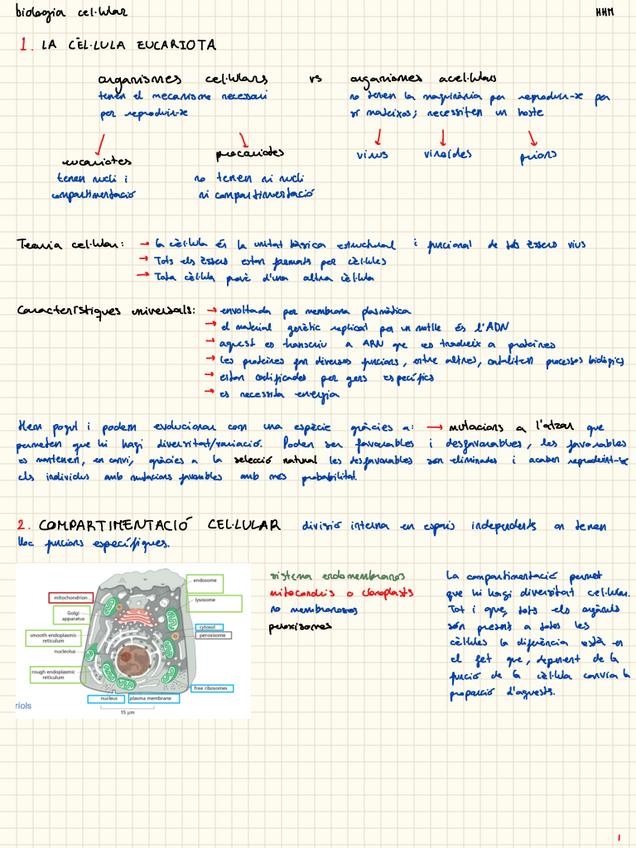 biologia cel·lular
HHM
1. LA CÈL·LULA EUCARIOTA
organismes cel·lulars vs organismes acel·lulars
tenen el mecanisme necessari
per reproduir-se
no tenen la maquinària per reproduir-se per
sí mateixos; necessiten un hoste
eucariotes
tenen nucli i
compartimentació
procariotes
no tenen ni nucli
ni compartimentació
virus
viroides
prions
Teoria cel·lular: → la cèl·lula és la unitat bàsica estructural i funcional de tots éssers vius
→ Tots els éssers estan formats per cèl·lules
→ Tota cèl·lula prové d'una altra cèl·lula
Característiques universals: → envoltada per membrana plasmàtica
→ el material genètic replicat per un motlle és l'ADN
→ aquest es transcriu a ARN que es tradueix a proteïnes
→ les proteïnes fan diverses funcions, entre altres, catalitzen processos biològics
→ estan codificades per gens específics
→ es necessita energia
Hem pogut i podem evolucionar com una espècie gràcies a: → mutacions a l'atzar que
permeten que hi hagi diversitat/variació. Poden ser favorables i desfavorables, les favorables
es mantenen, en canvi, gràcies a la selecció natural les desfavorables són eliminades i acaben reproduint-se
els individus amb mutacions favorables amb més probabilitat.
2. COMPARTIMENTACIÓ CEL·LULAR divisió interna en espais independents on tenen
lloc funcions específiques.
endosome
mitochondrion
lysosome
Golgi
apparatus
cytosol
smooth endoplasmic
reticulum
peroxisome
nucleolus
rough endoplasmic
reticulum
free ribosomes
nucleus
plasma membrane
15 µm
riols
sistema endomembranós
mitocondris o cloroplasts
no membranosos
peroxisomes
La compartimentació permet
que hi hagi diversitat cel·lular.
Tot i que, tots els orgànuls
són present a totes les
cèl·lules la diferència està en
el fet que, depenent de la
funció de la cèl·lula canvia la
proporció d'aquests.
1